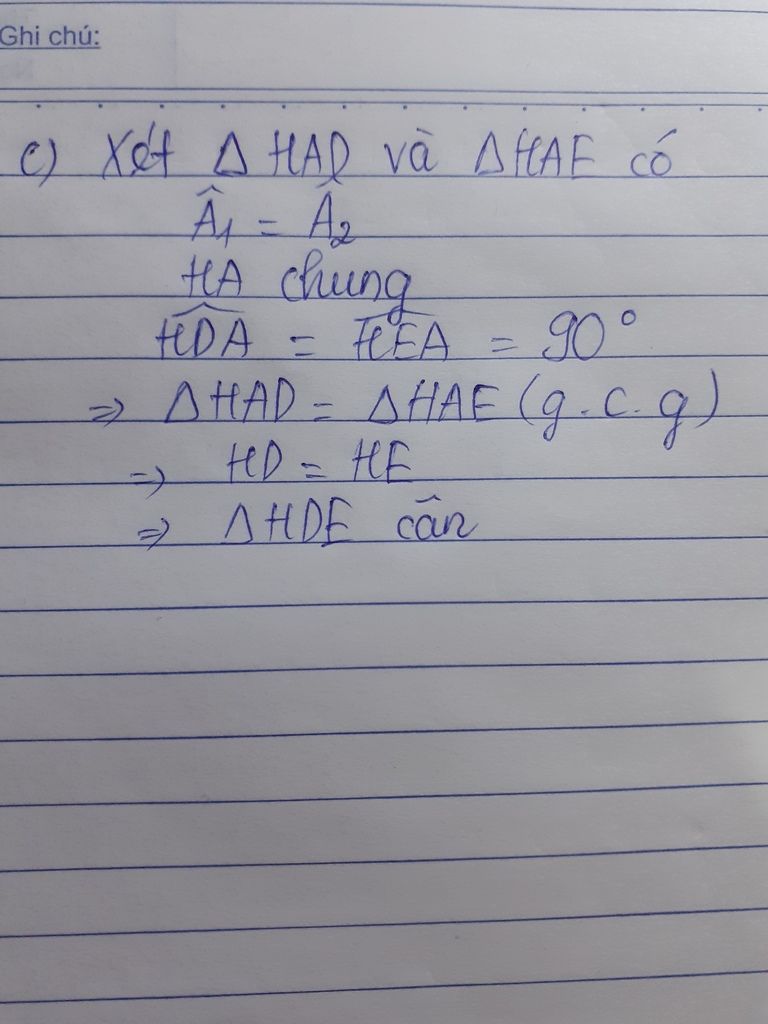 Ghi chú:
c) Xét Δ HAD và Δ HAE có
Â₁ = Â₂
HA chung
\widehat{HDA} = \widehat{HEA} = 90°
=> Δ HAD = Δ HAE (g.c.g)
=> HD = HE
=> Δ HDE cân